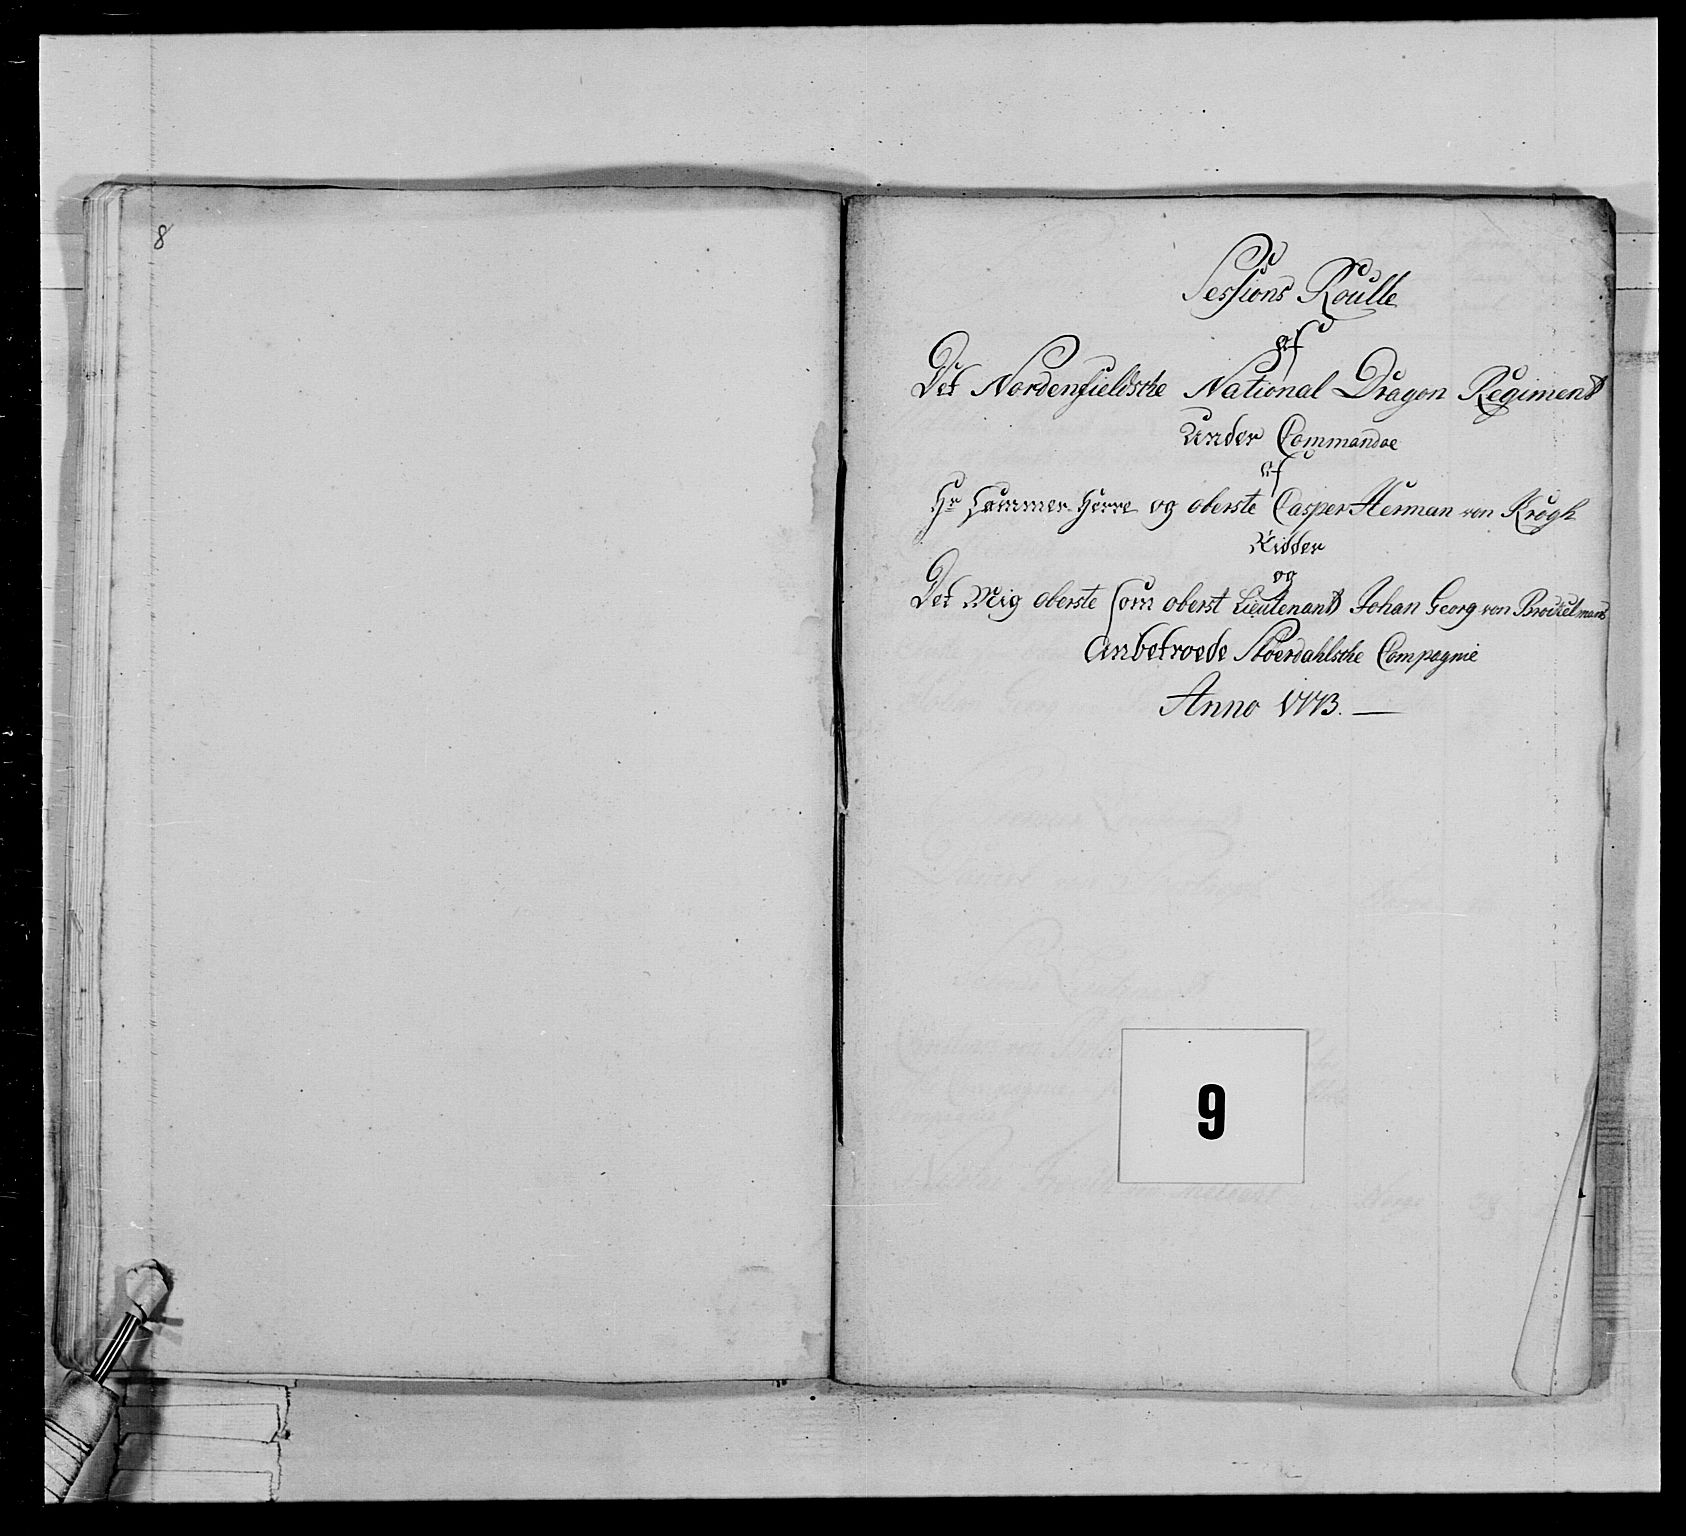 8
Sessions Roulle
af
Det Nordenfieldske National Dragon Regiment
Under Commandoe
af
Hr Cammer Herre og oberste Casper Herman von Krogh
Ridder
og
Det Mig oberste som oberst Lieutenant Johan Georg von Brockelmann
Anbetroede Stoerdahlske Compagnie
Anno 1773.
9